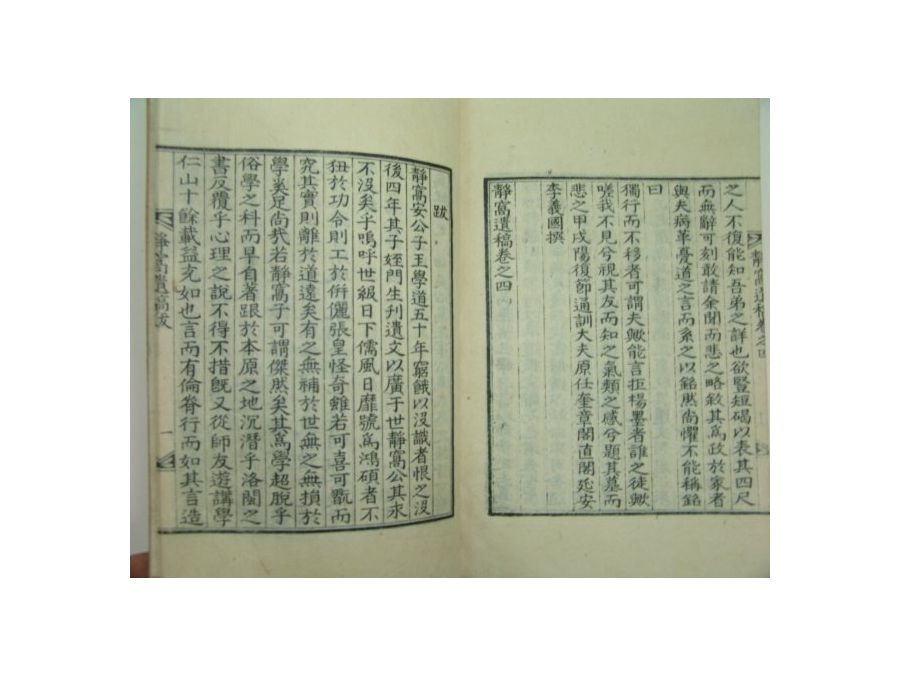 之人不復能知吾弟之詳也欲豎短碣以表其四尺
而無辭可刻敢請余聞而悲之略敘其爲政於家者
與夫病革疊道之言而系之以銘然尚懼不能稱銘
曰
獨行而不移者可謂夫歟能言拒楊墨者誰之徒歟
嗟我不見兮視其友而知之氣類之感兮題其墓而
悲之甲戌陽復節通訓大夫原任奎章閣直閣延安
李義國撰
靜窩遺稿卷之四
跋
靜窩安公子玉學道五十年窮餓以沒識者恨之沒
後四年其子姪門生刊遺文以廣于世靜窩公其永
不沒矣乎嗚呼世級日下儒風日靡號爲鴻碩者不
狃於功令則工於騈儷張皇怪奇雖若可喜可翫而
究其實則離於道遠矣有之無補於世無之無損於
學奚足尚哉若靜窩子可謂傑然矣其爲學超脫乎
俗學之科而早自著跟於本原之地沉潛乎洛閩之
書反覆乎心理之說不得不措旣又從師友遊講學
仁山十餘載益充如也言而有倫脊行而如其言造
靜窩遺稿跋 一